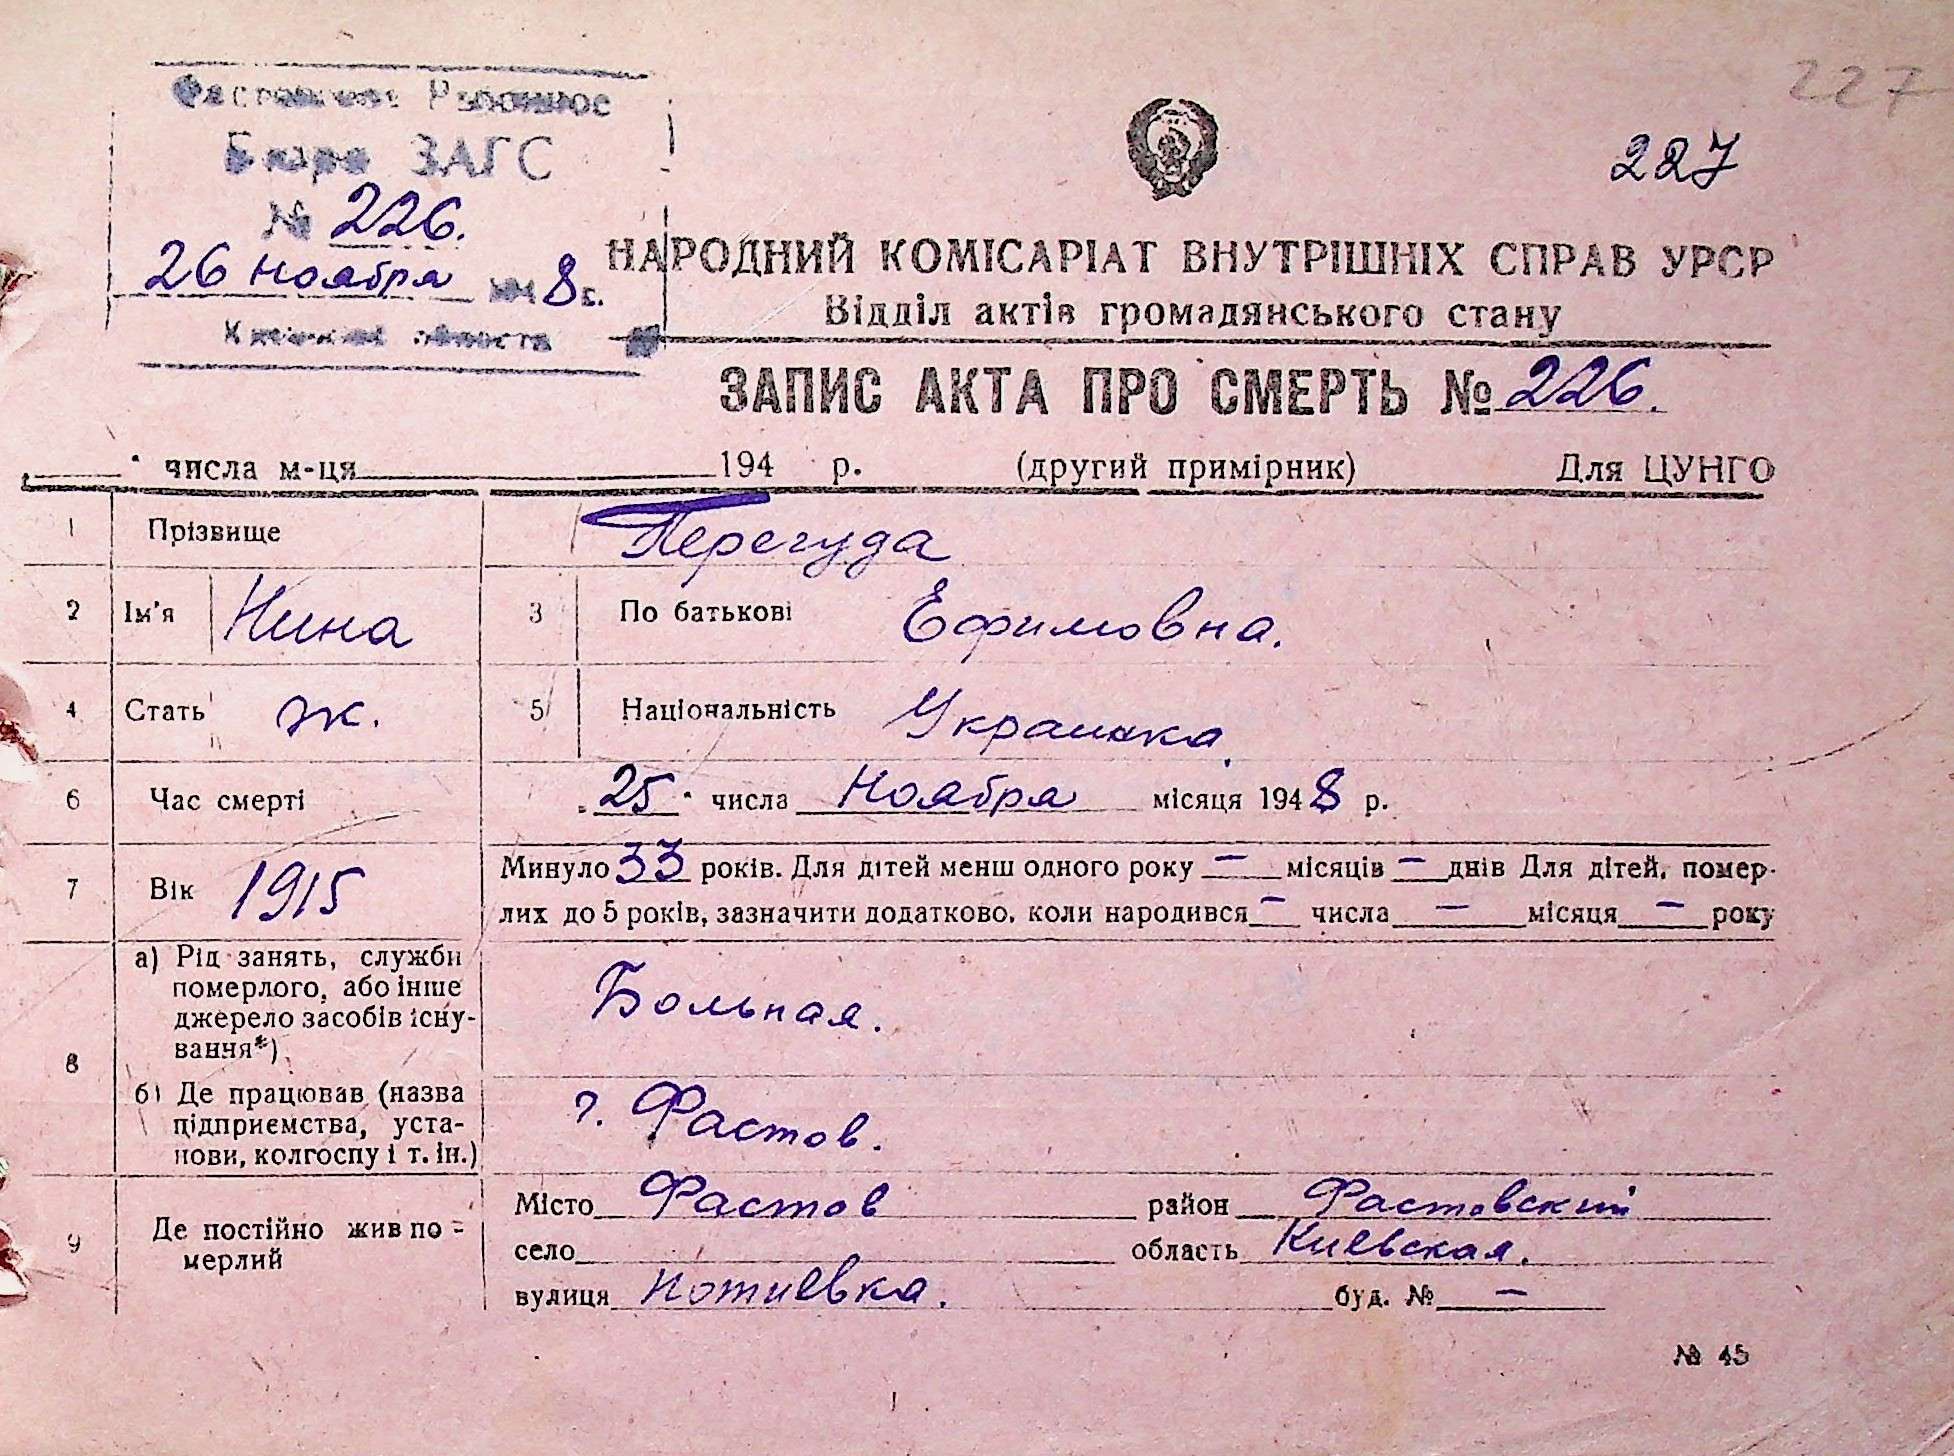 227
227
Районное
Бюро ЗАГС
№ 226.
26 ноября 1948 г.
области
НАРОДНИЙ КОМІСАРІАТ ВНУТРІШНІХ СПРАВ УРСР
Відділ актів громадянського стану
ЗАПИС АКТА ПРО СМЕРТЬ № 226.
числа м-ця 194 р. (другий примірник) Для ЦУНГО
1 Прізвище Перегуда
2 Ім'я Нина 3 По батькові Ефимовна.
4 Стать ж. 5 Національність Украинка
6 Час смерті „25" числа Ноября місяця 1948 р.
7 Вік 1915 Минуло 33 років. Для дітей менш одного року — місяців — днів Для дітей, помер-
лих до 5 років, зазначити додатково, коли народився — числа — місяця — року
8 а) Рід занять, служби
померлого, або інше
джерело засобів існу-
вання*)
Больная.
б) Де працював (назва
підприємства, уста-
нови, колгоспу і т. ін.)
г. Фастов.
9 Де постійно жив по-
мерлий
Місто Фастов район Фастовский
село область Киевская.
вулиця Потиевка. буд. № —
№ 45